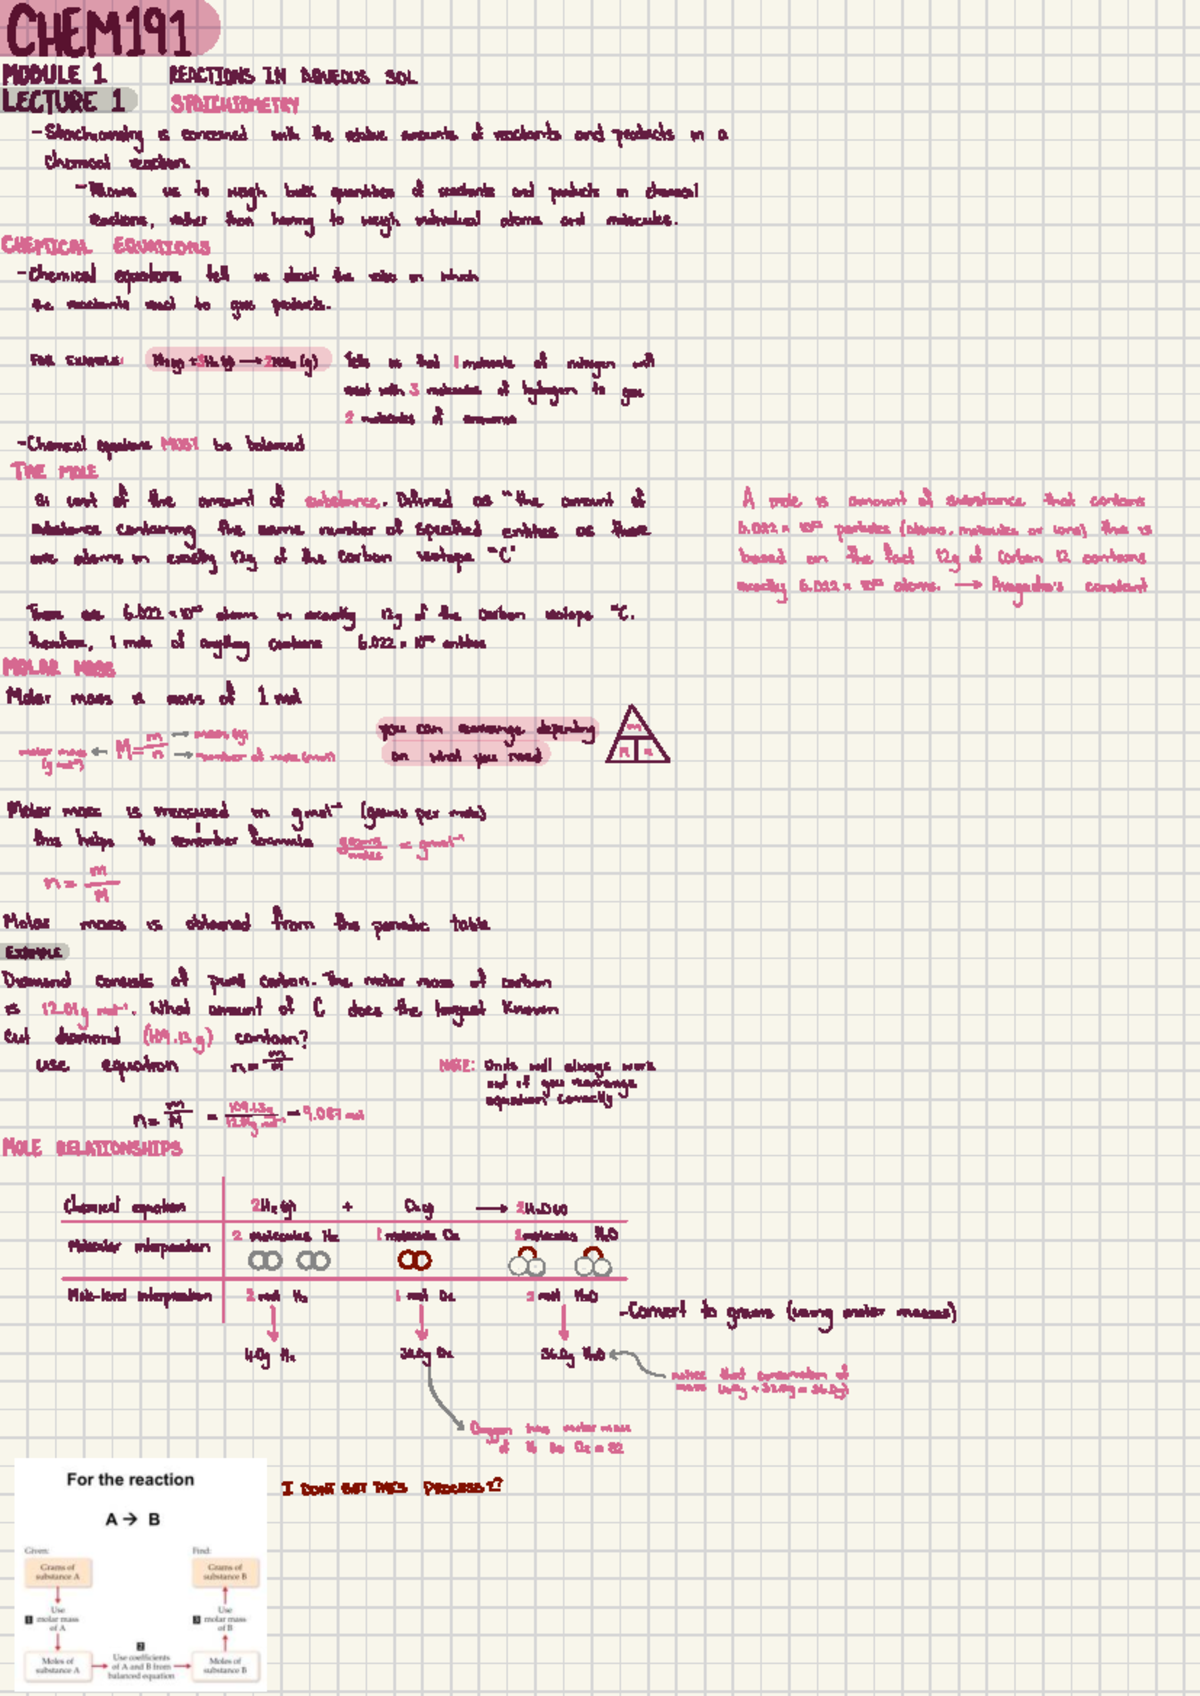 CHEM191
MODULE 1 REACTIONS IN AQUEOUS SOL
LECTURE 1 STOICHIOMETRY
- Stoichiometry is concerned with the relative amounts of reactants and products in a
Chemical reaction.
- Allows us to weigh bulk quantities of reactants and products in chemical
reactions, rather than having to weigh individual atoms and molecules.
CHEMICAL EQUATIONS
- Chemical equations tell us about the ratio in which
the reactants react to give products.
FOR EXAMPLE: N₂(g) + 3H₂(g) → 2NH₃(g) Tells us that 1 molecule of nitrogen will
react with 3 molecules of hydrogen to give
2 molecules of ammonia
- Chemical equations MUST be balanced
THE MOLE
SI unit of the amount of substance. Defined as "the amount of
substance containing the same number of specified entities as there
are atoms in exactly 12g of the carbon isotope ¹²C"
A mole is amount of substance that contains
6.022 × 10²³ particles (atoms, molecules or ions) this is
based on the fact 12g of Carbon 12 contains
exactly 6.022 × 10²³ atoms. → Avagadro's constant
There are 6.022 × 10²³ atoms in exactly 12g of the carbon isotope ¹²C.
Therefore, 1 mole of anything contains 6.022 × 10²³ entities
MOLAR MASS
Molar mass is mass of 1 mol
molar mass (g mol⁻¹) ← M = m/n → mass (g)
→ number of mole (mol)
you can rearrange depending
on what you need
m
M n
Molar mass is measured in gmol⁻¹ (grams per mole)
this helps to remember formula grams/moles = gmol⁻¹
n = m/M
Molar mass is obtained from the periodic table
EXAMPLE
Diamond consists of pure carbon. The molar mass of carbon
is 12.01g mol⁻¹. What amount of C does the largest known
cut diamond (109.13 g) contain?
use equation n = m/M
NOTE: Units will always work
out if you rearrange
equation correctly
n = m/M = 109.13g/12.01g mol⁻¹ = 9.087 mol
MOLE RELATIONSHIPS
Chemical equation 2H₂(g) + O₂(g) → 2H₂O(l)
Molecular interpretation 2 molecules H₂ 1 molecule O₂ 2 molecules H₂O
Mole-level interpretation 2 mol H₂ 1 mol O₂ 2 mol H₂O
- Convert to grams (using molar masses)
4.0g H₂ 32.0g O₂ 36.0g H₂O
notice that conservation of
mass (4.0g + 32.0g = 36.0g)
Oxygen has molar mass
of 16 so O₂ = 32
For the reaction
A → B
I DONT GET THIS PROCESS??
Given: Find:
Grams of substance A
Grams of substance B
1 Use molar mass of A
3 Use molar mass of B
2
Moles of substance A
Use coefficients of A and B from balanced equation
Moles of substance B